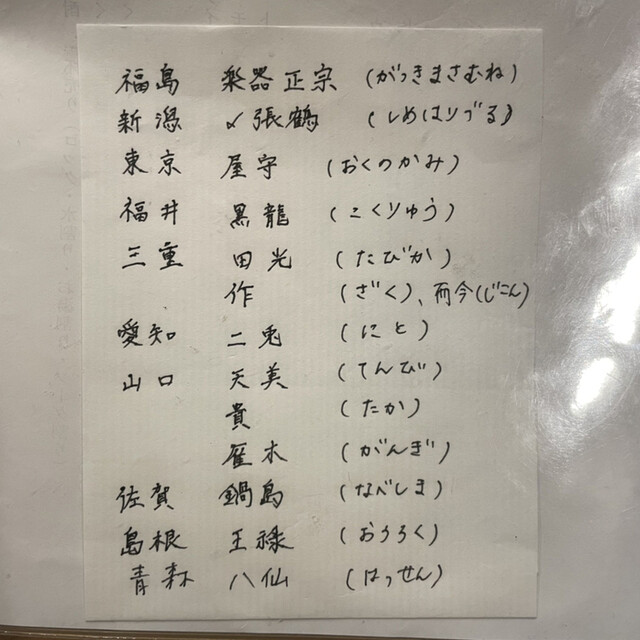 福島 楽器正宗 (がっきまさむね)
新潟 〆張鶴 (しめはりづる)
東京 屋守 (おくのかみ)
福井 黒龍 (こくりゅう)
三重 田光 (たびか)
作 (ざく)、而今(じこん)
愛知 二兎 (にと)
山口 天美 (てんび)
貴 (たか)
雁木 (がんぎ)
佐賀 鍋島 (なべしま)
島根 王祿 (おうろく)
青森 八仙 (はっせん)